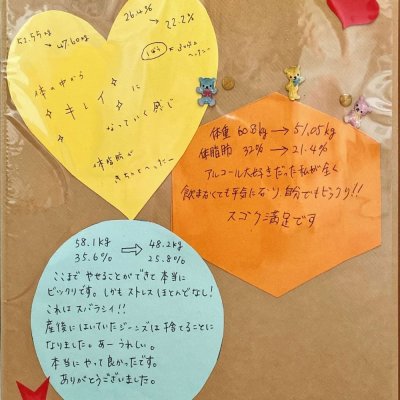 52.55kg → 47.60kg
26.4% → 22.2%
体の中から
キレイに
なっていく感じ
体脂肪が
体重 60.8kg → 51.05kg
体脂肪 32% → 21.4%
アルコール大好きだった私が全く
飲まなくても平気になり、自分でもビックリ!!
スゴク満足です
58.1kg ⇒ 48.2kg
35.6% 25.8%
ここまでやせることができて本当に
ビックリです。しかもストレスほとんどなし!
これはスバラシイ!!
産後にはいていたジーンズは捨てることに
なりました。あーうれしい。
本当にやって良かったです。
ありがとうございました。